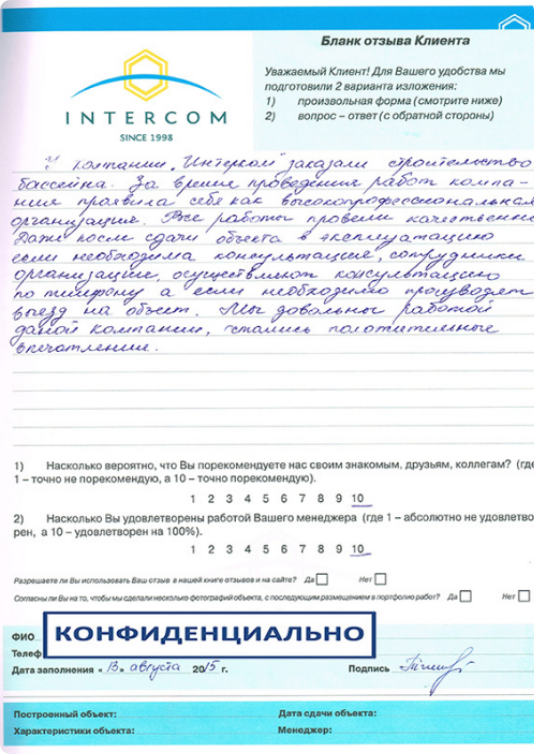 Бланк отзыва Клиента
Уважаемый Клиент! Для Вашего удобства мы
подготовили 2 варианта изложения:
1) произвольная форма (смотрите ниже)
2) вопрос – ответ (с обратной стороны)
INTERCOM
SINCE 1998
У компании "Интерком" заказали строительство
бассейна. За время проведения работ компа-
ния проявила себя как высокопрофессиональная
организация. Все работы провели качественно
Даже после сдачи объекта в эксплуатацию
если необходима консультация, сотрудники
организации, осуществляют консультацию
по телефону а если необходимо производят
выезд на объект. Мы довольны работой
даной компании, остались положительные
впечатления.
1) Насколько вероятно, что Вы порекомендуете нас своим знакомым, друзьям, коллегам? (где
1 – точно не порекомендую, а 10 – точно порекомендую).
1 2 3 4 5 6 7 8 9 10
2) Насколько Вы удовлетворены работой Вашего менеджера (где 1 – абсолютно не удовлетво
рен, а 10 – удовлетворен на 100%).
1 2 3 4 5 6 7 8 9 10
Разрешаете ли Вы использовать Ваш отзыв в нашей книге отзывов и на сайте? Да Нет
Согласны ли Вы на то, чтобы мы сделали несколько фотографий объекта, с последующим размещением в портфолио работ? Да Нет
ФИО КОНФИДЕНЦИАЛЬНО
Телеф
Дата заполнения «13» августа 2015 г. Подпись
Построенный объект: Дата сдачи объекта:
Характеристики объекта: Менеджер: